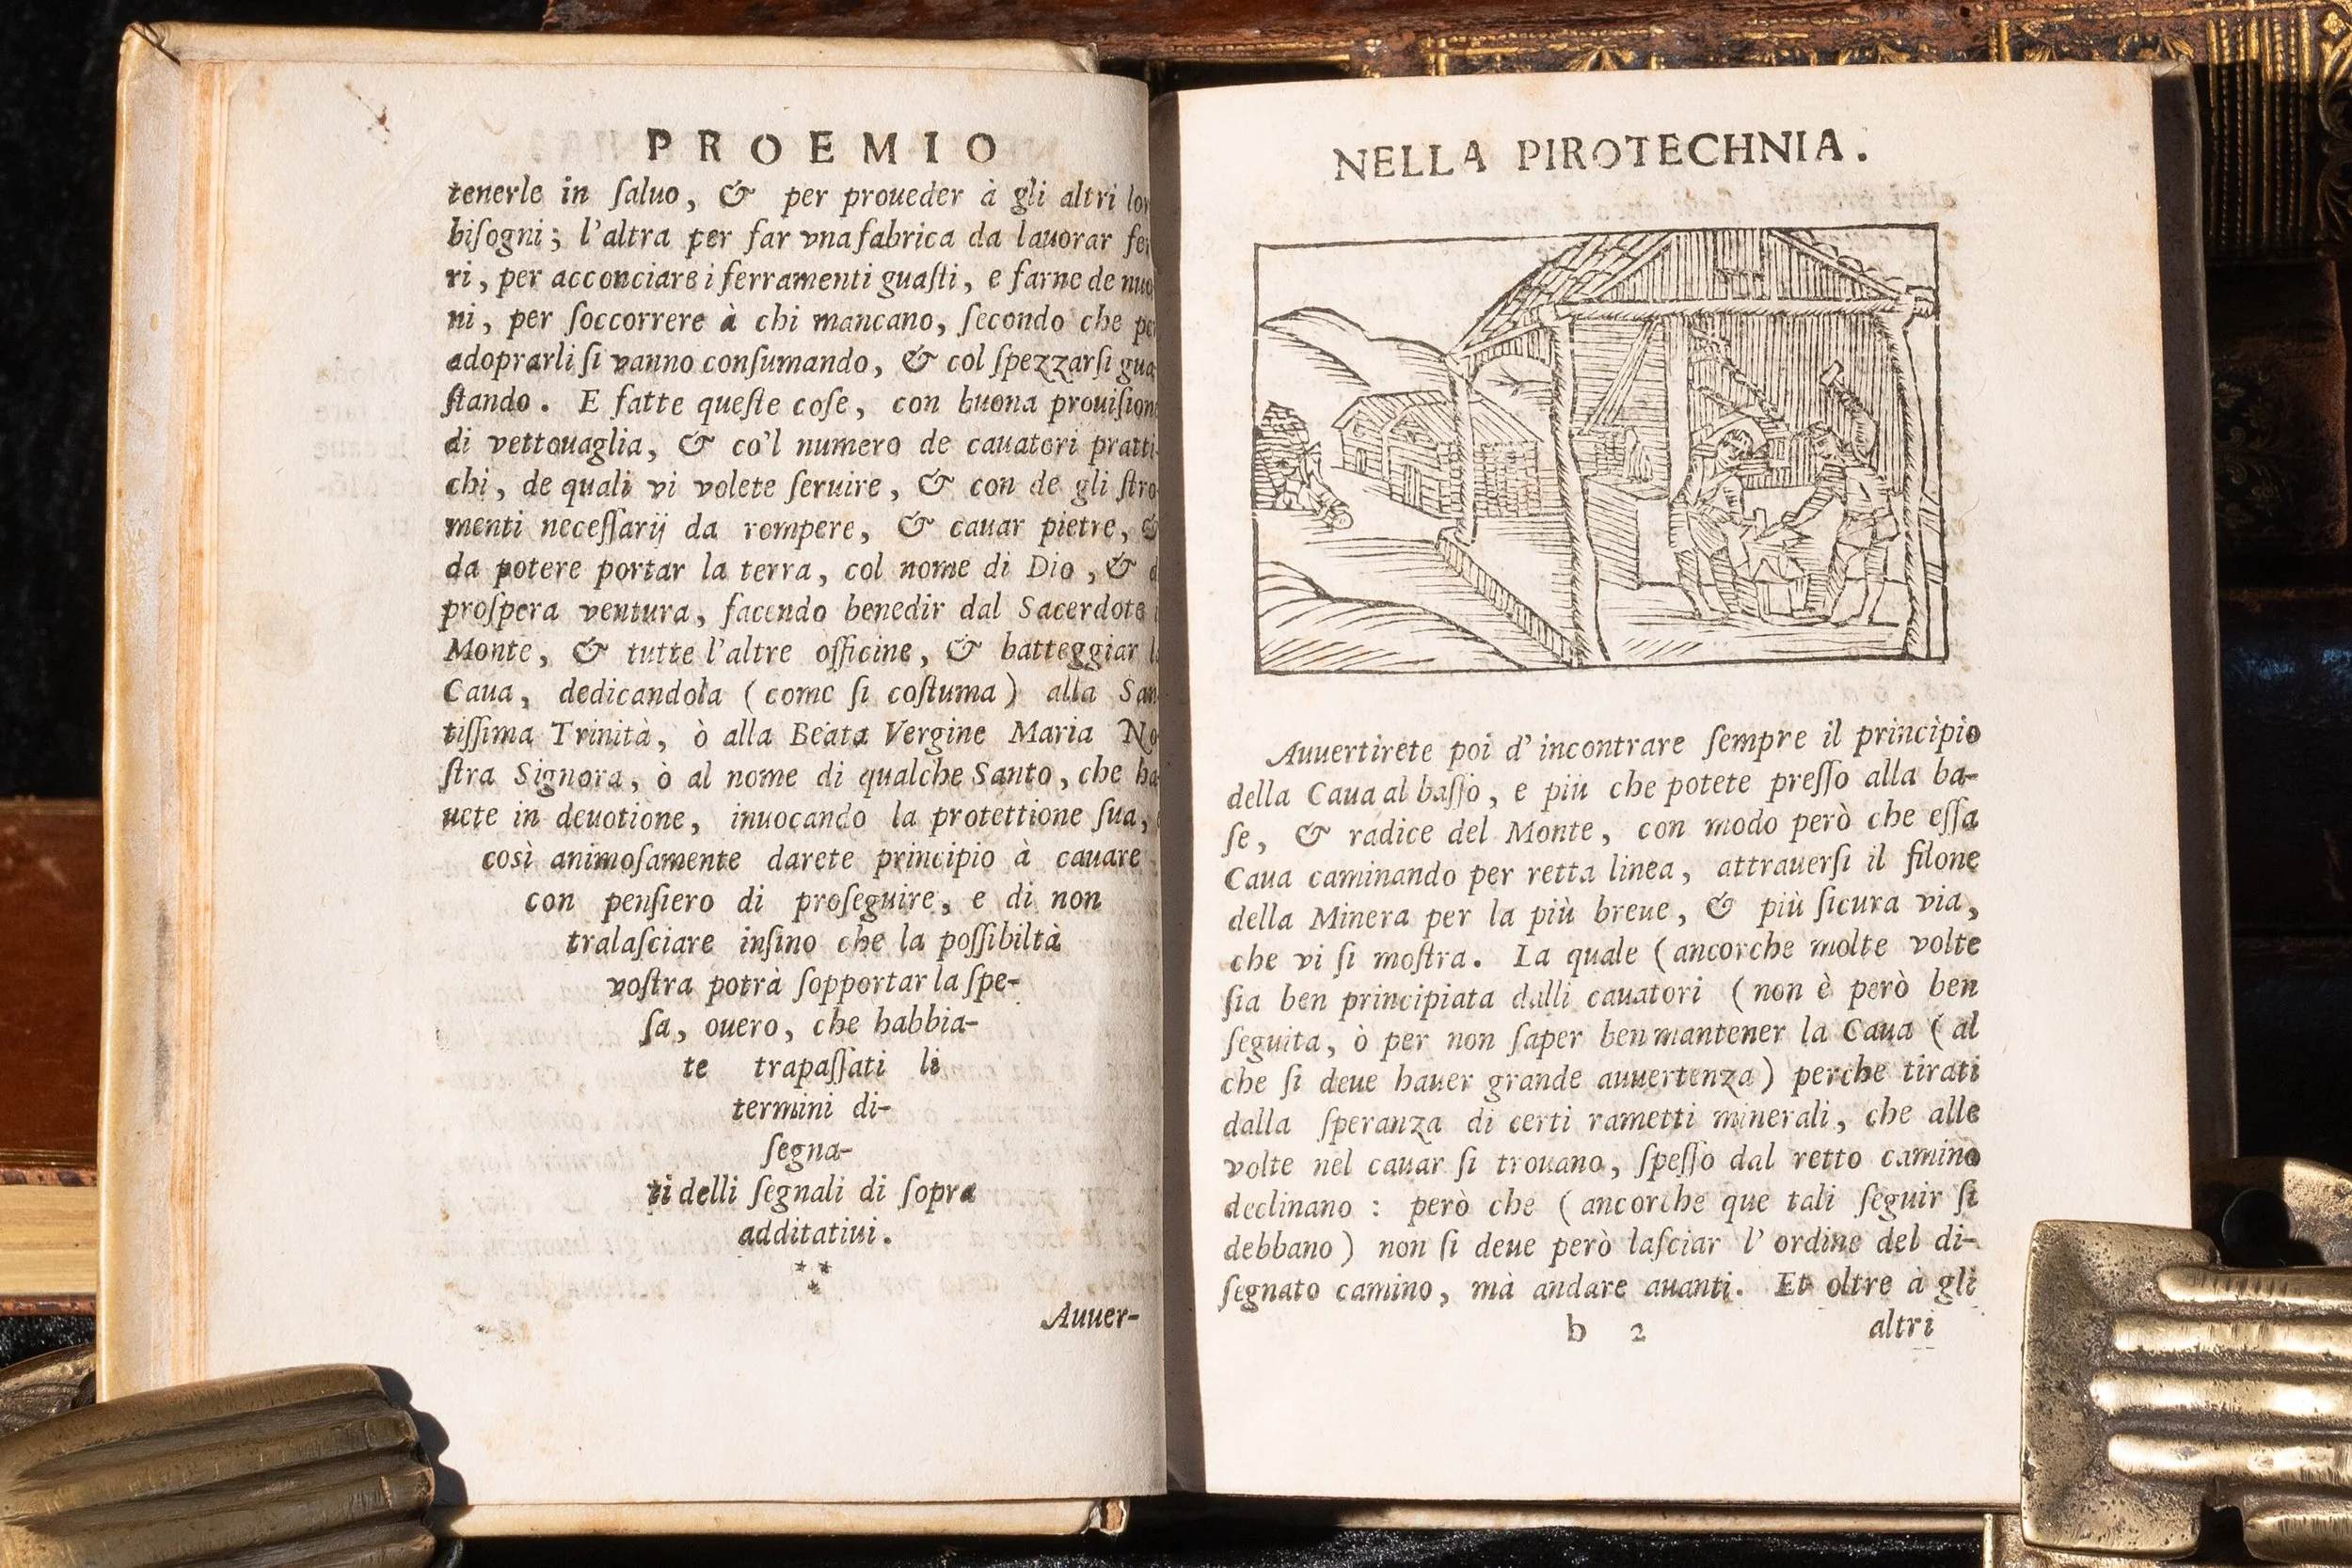 PROEMIO
tenerle in ſaluo, & per proueder à gli altri
biſogni; l'altra per far vna fabrica da lauorar
ri, per acconciare i ferramenti guaſti, e farne de
ni, per ſoccorrere à chi mancano, ſecondo che
adoprarli ſi vanno conſumando, & col ſpezzarſi
ſtando. E fatte queſte coſe, con buona
di vettouaglia, & co'l numero de cauatori pratti-
chi, de quali vi volete ſeruire, & con de gli ſtro-
menti neceſſarij da rompere, & cauar pietre, &
da potere portar la terra, col nome di Dio, &
proſpera ventura, facendo benedir dal Sacerdote
Monte, & tutte l'altre officine, & batteggiar
Caua, dedicandola (come ſi coſtuma) alla
tiſſima Trinità, ò alla Beata Vergine Maria
ſtra Signora, ò al nome di qualche Santo, che
uete in deuotione, inuocando la protettione ſua,
così animoſamente darete principio à cauare
con penſiero di proſeguire, e di non
tralaſciare inſino che la poſſibiltà
voſtra potrà ſopportar la ſpe-
ſa, ouero, che habbia-
te trapaſſati li
termini di-
ſegna-
ti delli ſegnali di ſopra
additatiui.
***
Auuer-
NELLA PIROTECHNIA.
Auuertirete poi d' incontrare ſempre il principio
della Caua al baſſo, e più che potete preſſo alla ba-
ſe, & radice del Monte, con modo però che eſſa
Caua caminando per retta linea, attrauerſi il filone
della Minera per la più breue, & più ſicura via,
che vi ſi moſtra. La quale (ancorche molte volte
ſia ben principiata dalli cauatori (non è però ben
ſeguita, ò per non ſaper ben mantener la Caua (al
che ſi deue hauer grande auuertenza) perche tirati
dalla ſperanza di certi rametti minerali, che alle
volte nel cauar ſi trouano, ſpeſſo dal retto camino
declinano : però che (ancorche que tali ſeguir ſi
debbano) non ſi deue però laſciar l' ordine del di-
ſegnato camino, mà andare auanti. Et oltre à gli
b 2 altri